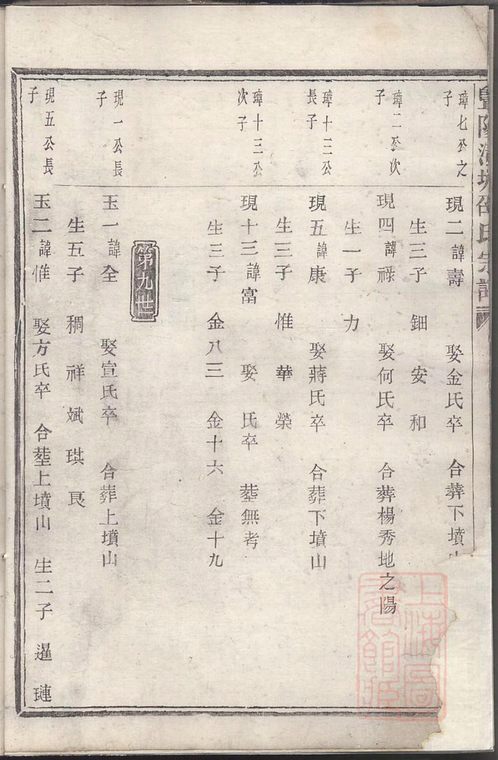 璋七公之子
現二諱壽 娶金氏卒 合葬下墳山
生三子 鈿 安 和
璋二公次子
現四諱祿 娶何氏卒 合葬楊秀地之陽
生一子 力
璋十三公長子
現五諱康 娶蔣氏卒 合葬下墳山
生三子 惟 華 榮
璋十三公次子
現十三諱富 娶 氏卒 塟無考
生三子 金八三 金十六 金十九
第九世
現一公長子
玉一諱全 娶宣氏卒 合葬上墳山
生五子 稠 祥 斌 琪 良
現五公長子
玉二諱惟 娶方氏卒 合塟上墳山 生二子 暹 璉
上海圖書館藏